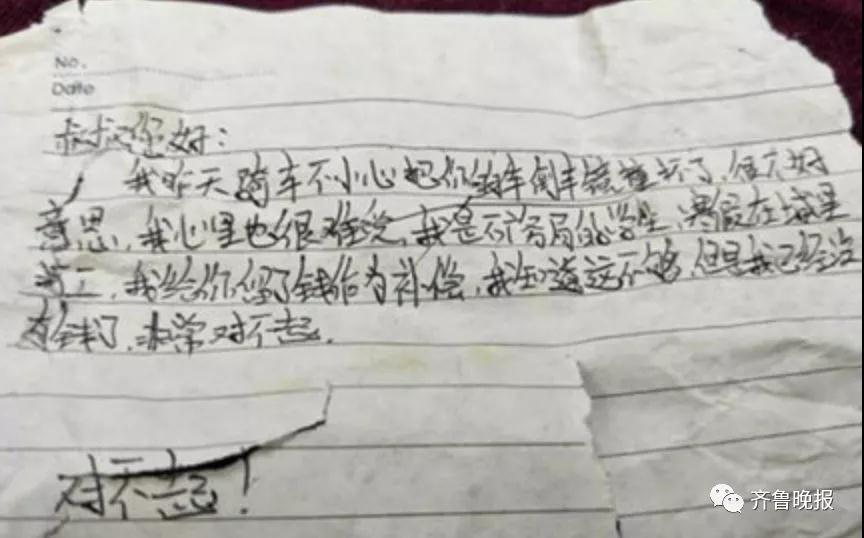 No.
Date
叔叔您好：
我昨天骑车不小心把你的车倒车镜撞坏了，很不好
意思，我心里也很难受，我是一个的学生，寒假在城里
打工，我给你留了钱作为补偿，我知道这不够，但是我已经没
有钱了，非常对不起。
对不起！
齐鲁晚报